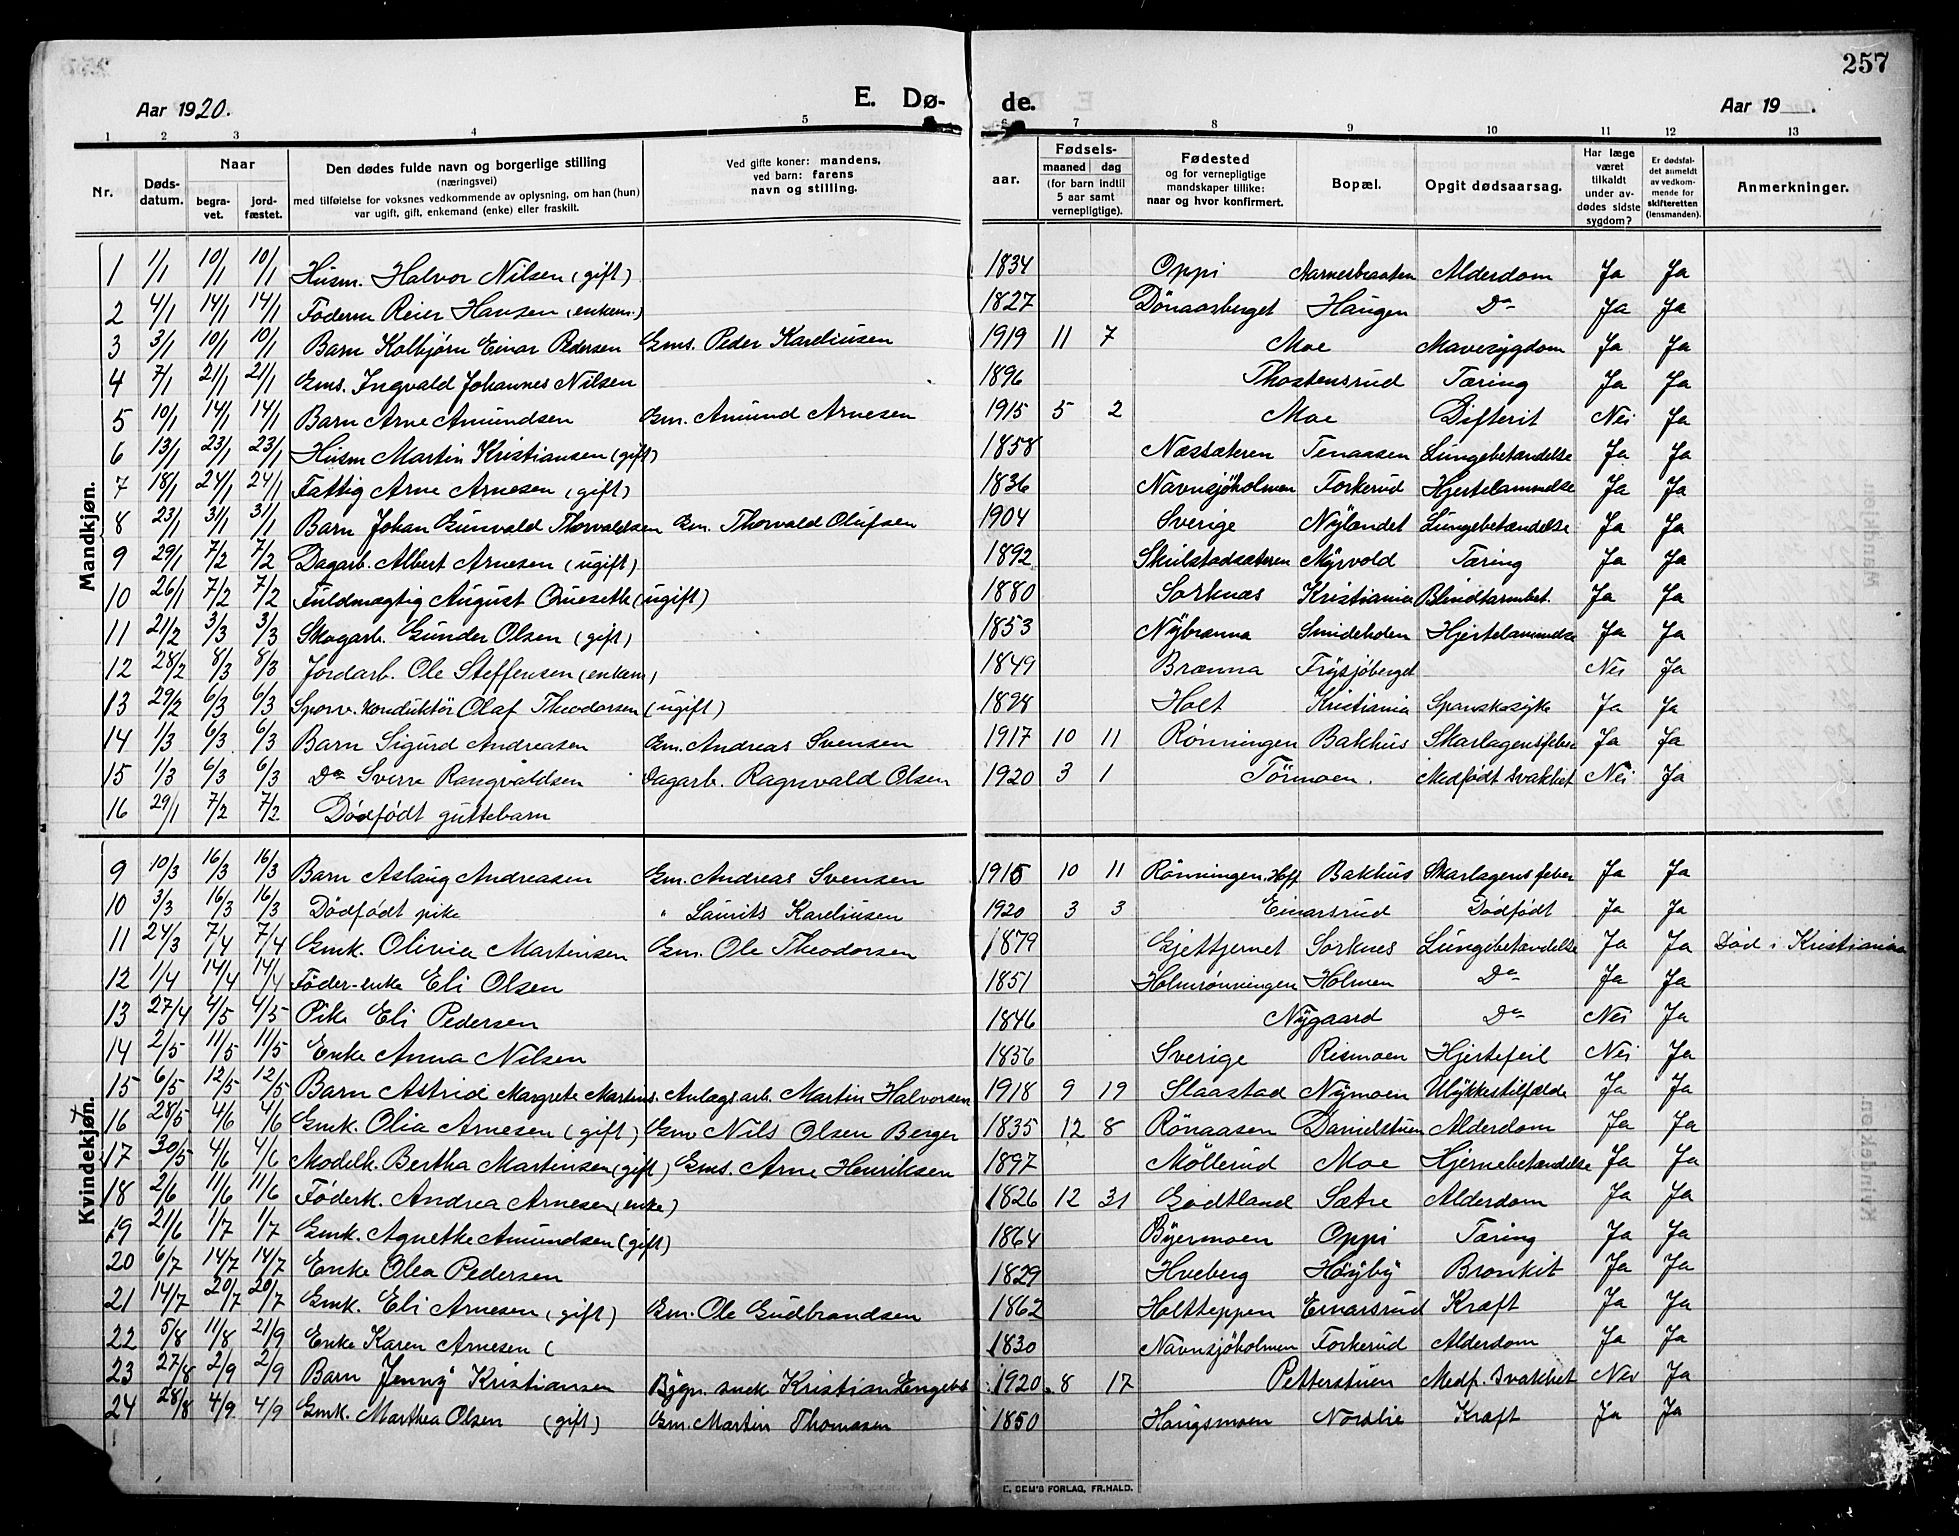 257
Aar 1920. E. Dø- de. Aar 19 .
1 2 3 4 5 6 7 8 9 10 11 12 13
Nr. Døds-datum. Naar begra-vet. jord-fæstet. Den dødes fulde navn og borgerlige stilling (næringsvei) med tilføielse for voksnes vedkommende av oplysning, om han (hun) var ugift, gift, enkemand (enke) eller fraskilt. Ved gifte koner: mandens, ved barn: farens navn og stilling. aar. Fødsels- maaned dag (for barn indtil 5 aar samt vernepligtige). Fødested og for vernepligtige mandskaper tillike: naar og hvor konfirmert. Bopæl. Opgit dødsaarsag. Har læge været tilkaldt under av-dødes sidste sygdom? Er dødsfal-det anmeldt av vedkom-mende for skifteretten (lensmanden). Anmerkninger.
Mandkjøn.
1 1/1 10/1 10/1 Husm. Halvor Nilsen (gift) 1834 Oppi Aarnesbraaten Alderdom Ja Ja
2 4/1 14/1 14/1 Föderm Reier Hansen (enkem.) 1827 Dönaasberget Haugen Do Ja Ja
3 3/1 10/1 10/1 Barn Kolbjørn Einar Pedersen Gms. Peder Kareliusen 1919 11 7 Moe Mavesygdom Ja Ja
4 7/1 21/1 21/1 Gms. Ingvald Johannes Nilsen 1896 Thostensrud Tæring Ja Ja
5 10/1 14/1 14/1 Barn Arne Amundsen Gm. Amund Arnesen 1915 5 2 Moe Difterit Nei Ja
6 13/1 23/1 23/1 Husm Martin Kristiansen (gift) 1858 Næssæteren Tenaasen Lungebetændelse Ja Ja
7 18/1 24/1 24/1 Fattig Arne Arnesen (gift) 1836 Navnsjöholmen Forkerud Hjertelammelse Ja Ja
8 23/1 3/1 3/1 Barn Johan Gunvald Thorvaldsen Gm. Thorvald Olufsen 1904 Sverige Nylandet Lungebetændelse Ja Ja
9 29/1 7/2 7/2 Dagarb. Albert Arnesen (ugift) 1892 Skulstadsæteren Myrvold Tæring Ja Ja
10 26/1 7/2 7/2 Fuldmægtig August (ugift) 1880 Sorknæs Kristiania Blindtarmbet. Ja Ja
11 21/2 3/3 3/3 Skogarb. Gunder Olsen (gift) 1853 Nybrænna Smidehden Hjertelammelse Ja Ja
12 28/2 8/3 8/3 Jordarb. Ole Steffensen (enkem) 1849 Brænna Frysjöberget Nei Ja
13 29/2 6/3 6/3 Sporv. konduktör Olaf Theodorsen (ugift) 1898 Holt Kristiania Spanskesyke Ja Ja
14 1/3 6/3 6/3 Barn Sigurd Andreasen Gm. Andreas Svensen 1917 10 11 Rønningen Bakhus Skarlagensfeber Ja Ja
15 1/3 6/3 6/3 Do Sverre Rangvaldsen Dagarb. Ragnvald Olsen 1920 3 1 Törmoen. Medfødt svakhet Nei Ja
16 29/1 7/2 7/2 Dödfödt guttebarn
Kvindekjøn.
9 10/3 16/3 16/3 Barn Aslaug Andreasen Gm. Andreas Svensen 1915 10 11 Rønningen, Hoff Bakhus Skarlagensfeber Ja Ja
10 3/3 16/3 16/3 Dödfödt pike " Laurits Kareliusen 1920 3 3 Einarsrud Dödfödt Ja Ja
11 24/3 7/4 7/4 Gmk. Olivia Martinsen Gm. Ole Theodorsen 1879 Gjettjernet Sorknes Lungebetændelse Ja Ja Død i Kristiania
12 1/4 14/4 14/4 Föder-enke Eli Olsen 1851 Holmrønningen Holmen Do Ja Ja
13 27/4 4/5 4/5 Pike Eli Pedersen 1846 Nygaard Do Nei Ja
14 2/5 11/5 11/5 Enke Anna Nilsen 1836 Sverige Rismoen Hjertefeil Nei Ja
15 6/5 12/5 12/5 Barn Astrid Margrete Martins. Anlægsarb. Martin Halvorsen 1918 9 19 Slaastad Nymoen Ulykkestilfælde Ja Ja
16 28/5 4/6 4/6 Gmk. Olia Arnesen (gift) Gm Nils Olsen Berger 1835 12 8 Rönaasen Danielstuen Alderdom Ja Ja
17 30/5 4/6 4/6 Modelk. Bertha Martinsen (gift) Gms. Arne Henriksen 1897 Möllerud Moe Hjernebetændelse Ja Ja
18 2/6 11/6 11/6 Föderk. Andrea Arnesen (enke) 1826 12 31 Godtland Sætre Alderdom Ja Ja
19 21/6 1/7 1/7 Gmk. Agnethe Amundsen (gift) 1864 Byermoen Oppi Tæring Ja Ja
20 6/7 14/7 14/7 Enke Olea Pedersen 1829 Hveberg Høyby Bronkit Ja Ja
21 14/7 20/7 20/7 Gmk. Eli Arnesen (gift) Gm. Ole Gudbrandsen 1862 Holtteppen Einarsrud Kræft Ja Ja
22 5/8 11/8 21/9 Enke Karen Arnesen ( 1830 Navnsjöholmen Forkerud Alderdom Ja Ja
23 27/8 2/9 2/9 Barn Jenny Kristiansen Bygn. snek Kristian Engebr 1920 8 17 Petterstuen Medf. Svakhet Nei Ja
24 28/8 4/9 4/9 Gmk. Marthea Olsen (gift) Gm. Martin Thomasen 1850 Haugsmoen Nordlie Kræft Ja Ja
E. SEM'S FORLAG, FR.HALD.